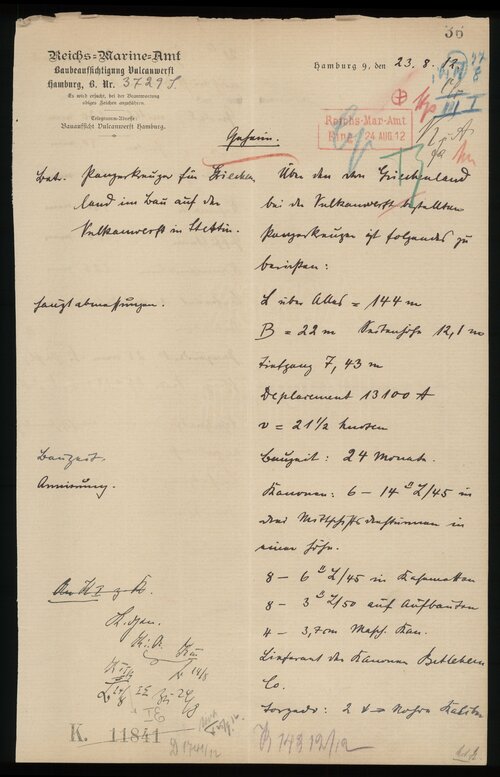 36
Reichs-Marine-Amt
Baubeaufsichtigung Vulcanwerft
Hamburg, B. Nr. 3729 S.
Es wird ersucht, bei der Beantwortung
obiges Zeichen anzuführen.
Telegramm-Adresse:
Bauaufsicht Vulcanwerft Hamburg.
Hamburg 9, den 23. 8. 12.
Reichs-Mar-Amt
Eing. 24 AUG. 12
III I
Geheim.
Bet. Panzerkreuzer für Griechen
land im Bau auf der
Vulkanwerft in Stettin.
Über den von Griechenland
bei der Vulkanwerft bestellten
Panzerkreuzer ist folgendes zu
berichten:
Hauptabmessungen.
L über Alles = 144 m
B = 22 m Seitenhöhe 12,1 m
Tiefgang 7,43 m
Deplacement 13100 t
v = 21 1/2 Knoten
Bauzeit.
Bauzeit: 24 Monate.
Armierung.
Kanonen: 6 – 14" L/45 in
drei Mittschiffsdrehtürmen in
einer Höhe.
8 – 6" L/45 in Kasematten
8 – 3" L/50 auf Aufbauten
4 – 3,7cm Masch. Kan.
Lieferant der Kanonen Bethlehem
Co.
Torpedo: 2 Rohre Kaliber
K. 11841